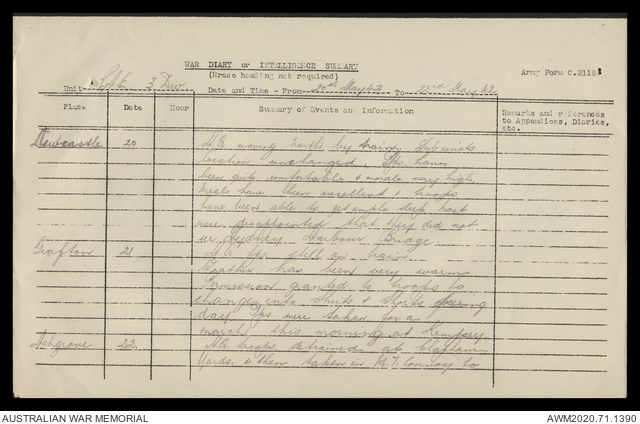 WAR DIARY or INTELLIGENCE SUMMARY
(Erase heading not required)
Army Form C.2118
Unit 3 Div. Date and Time - From 20th May 42 To 22nd May 42
Place Date Hour Summary of Events and Information Remarks and references to Appendices, Diaries, etc.
Newcastle 20 H.Q. moving north by train. Sub units
location unchanged. Tps. have
been quite comfortable & morale very high.
Meals have been excellent & troops
have been able to get ample sleep. Most
were disappointed that they did not
see Sydney Harbour Bridge.
Grafton 21 H.Q. tps still on train
Weather has been very warm
Permission granted to troops to
change into Shirts & Shorts during
day. Tps were taken for a
march this morning at Kempsey
Ashgrove 22 H.Q. troops detrained at Clapham
Yards. & then taken in M.T. Convoy to
AUSTRALIAN WAR MEMORIAL
AWM2020.71.1390